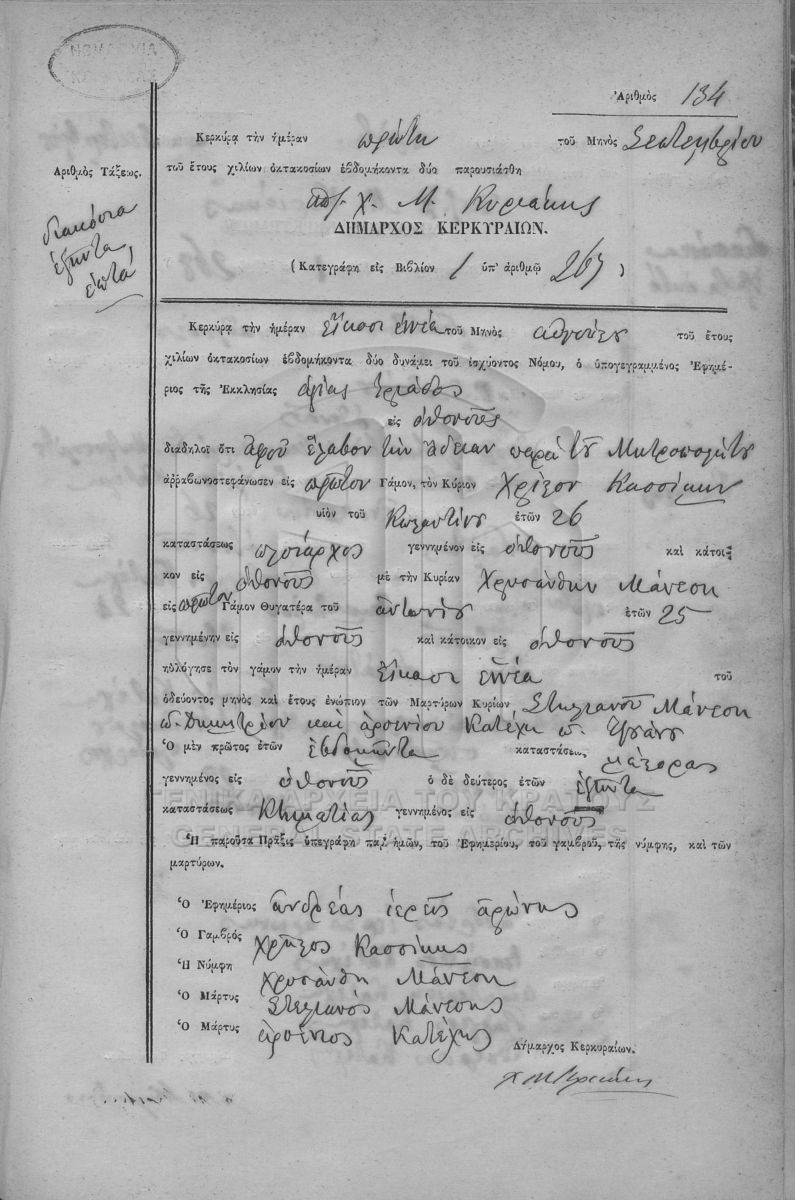 Ἀριθμὸς 134
Κερκύρᾳ τὴν ἡμέραν πρώτη τοῦ Μηνὸς Σεπτεμβρίου
Ἀριθμὸς Τάξεως.
τοῦ ἔτους χιλίων ὀκτακοσίων ἑβδομήκοντα δύο παρουσιάσθη
διακόσια
ἑξῆντα
ἑπτά
Χ. Μ. Κυριάκης
ΔΗΜΑΡΧΟΣ ΚΕΡΚΥΡΑΙΩΝ.
(Κατεγράφη εἰς Βιβλίον 1 ὑπ' ἀριθμῷ 267)
Κερκύρᾳ τὴν ἡμέραν εἴκοσι ἐννέα τοῦ Μηνὸς αὐγούστου τοῦ ἔτους
χιλίων ὀκτακοσίων ἑβδομήκοντα δύο δυνάμει τοῦ ἰσχύοντος Νόμου, ὁ ὑπογεγραμμένος Ἐφημέ-
ριος τῆς Ἐκκλησίας ἁγίας Τριάδος
εἰς ὀθονοὺς
διαδηλοῖ ὅτι ἀφοῦ ἔλαβον τὴν ἄδειαν παρὰ τοῦ Μητροπολίτου
ἀῤῥαβωνοστεφάνωσεν εἰς πρῶτον Γάμον, τὸν Κύριον Χρῆστον Κασσίμην
υἱὸν τοῦ Κωσταντίνου ἐτῶν 26
καταστάσεως πλοίαρχος γεννημένον εἰς ὀθονοὺς καὶ κάτοι-
κον εἰς ὀθονοὺς μὲ τὴν Κυρίαν Χρυσάνθην Μάνεση
εἰς πρῶτον Γάμον Θυγατέρα τοῦ ἀντωνίου ἐτῶν 25
γεννημένην εἰς ὀθονοὺς καὶ κάτοικον εἰς ὀθονοὺς
ηὐλόγησε τὸν γάμον τὴν ἡμέραν εἴκοσι ἐννέα τοῦ
ὁδεύοντος μηνὸς καὶ ἔτους ἐνώπιον τῶν Μαρτύρων Κυρίων Στυλιανοῦ Μάνεση
π. Δημητρίου καὶ ἀρσενίου Κατέχη π.
Ὁ μὲν πρῶτος ἐτῶν ἑβδομῆντα καταστάσεως
γεννημένος εἰς ὀθονοὺς ὁ δὲ δεύτερος ἐτῶν ἑξῆντα
καταστάσεως Κτηματίας γεννημένος εἰς ὀθονοὺς
ΓΕΝΙΚΑ ΑΡΧΕΙΑ ΤΟΥ ΚΡΑΤΟΥΣ
GENERAL STATE ARCHIVES
Ἡ παροῦσα Πρᾶξις ὑπεγράφη παρ' ἡμῶν, τοῦ Ἐφημερίου, τοῦ γαμβροῦ, τῆς νύμφης, καὶ τῶν
μαρτύρων.
Ὁ Ἐφημέριος ἀνδρέας ἱερεὺς
Ὁ Γαμβρός Χρῆστος Κασσίμης
Ἡ Νύμφη Χρυσάνθη Μάνεση
Ὁ Μάρτυς Στυλιανὸς Μάνεσης
Ὁ Μάρτυς ἀρσένιος Κατέχης
Δήμαρχος Κερκυραίων.
Χ Μ Κυριάκης